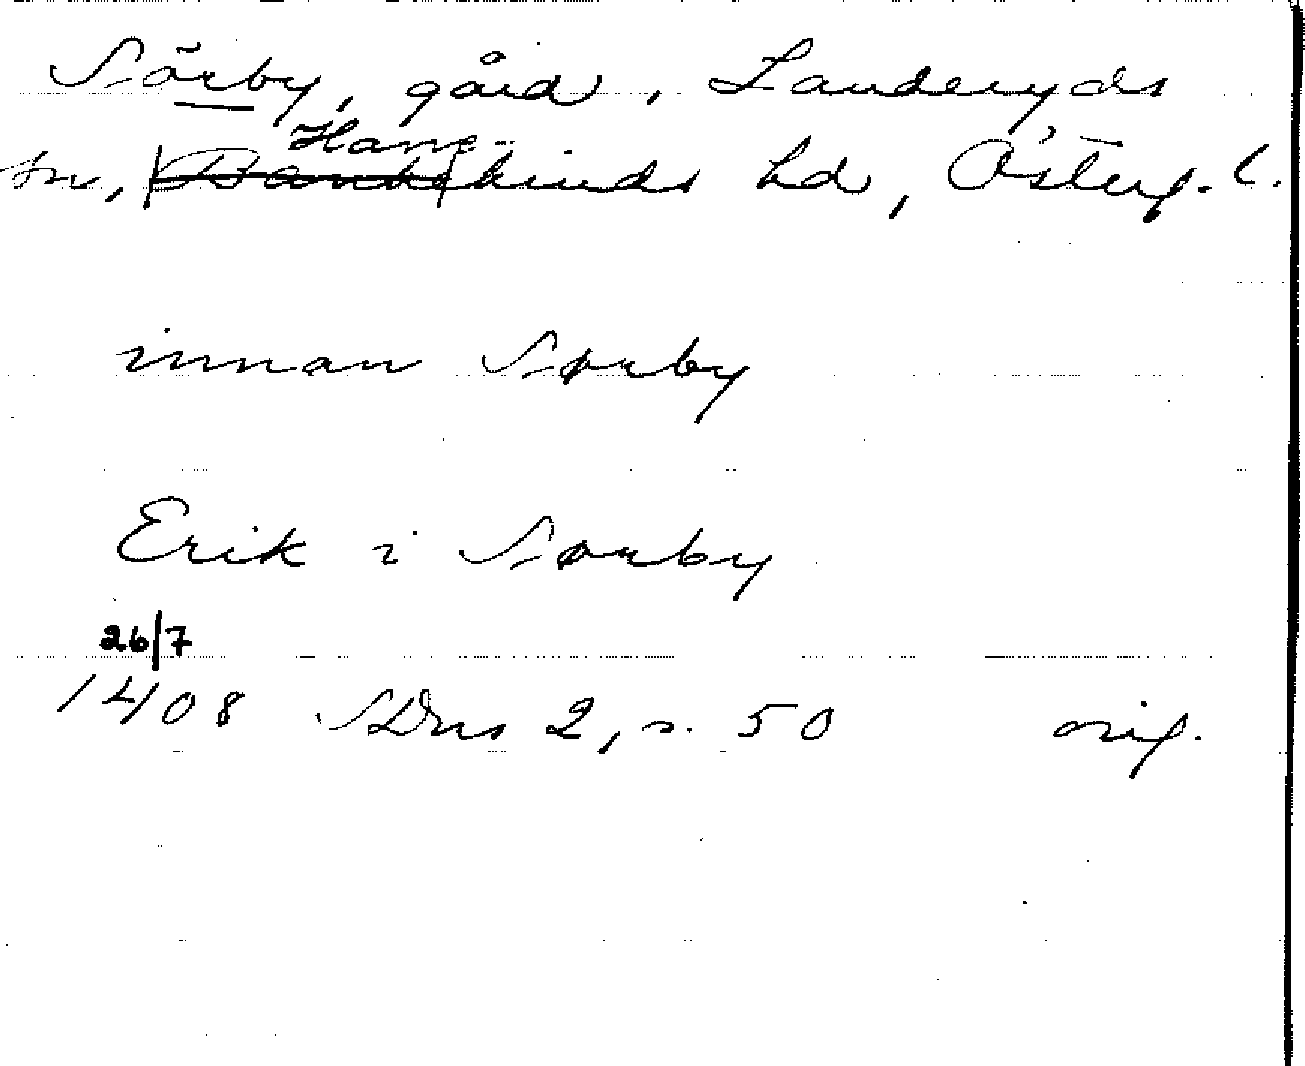 Sörby, gård, Landeryds
sn, Hanekinds hd, Österg. l.
innan Sørby
Erik i Sørby
26/7
1408 SDns 2, s. 50 orig.